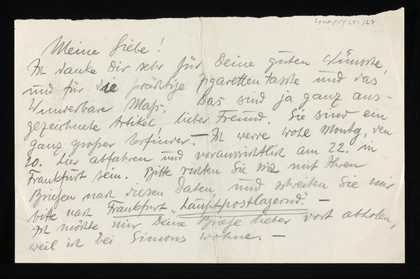 Meine Liebe!
Ich danke Dir sehr für Deine guten Wünsche,
und für die prächtige Zigarettentasche und das
Wunderbare Das sind ja ganz aus-
gezeichnete Artikel lieber Freund. Sie sind ein
ganz großer Erfinder. — Ich werde wohl Montag, den
20. hier abfahren und voraussichtlich am 22. in
Frankfurt sein. Bitte richten Sie sich mit Ihren
Briefen nach diesen Daten, und schreiben Sie mir
bitte nach Frankfurt Hauptpostlagernd. —
Ich möchte mir Deine Briefe lieber dort abholen,
weil ich bei Simons wohne. —